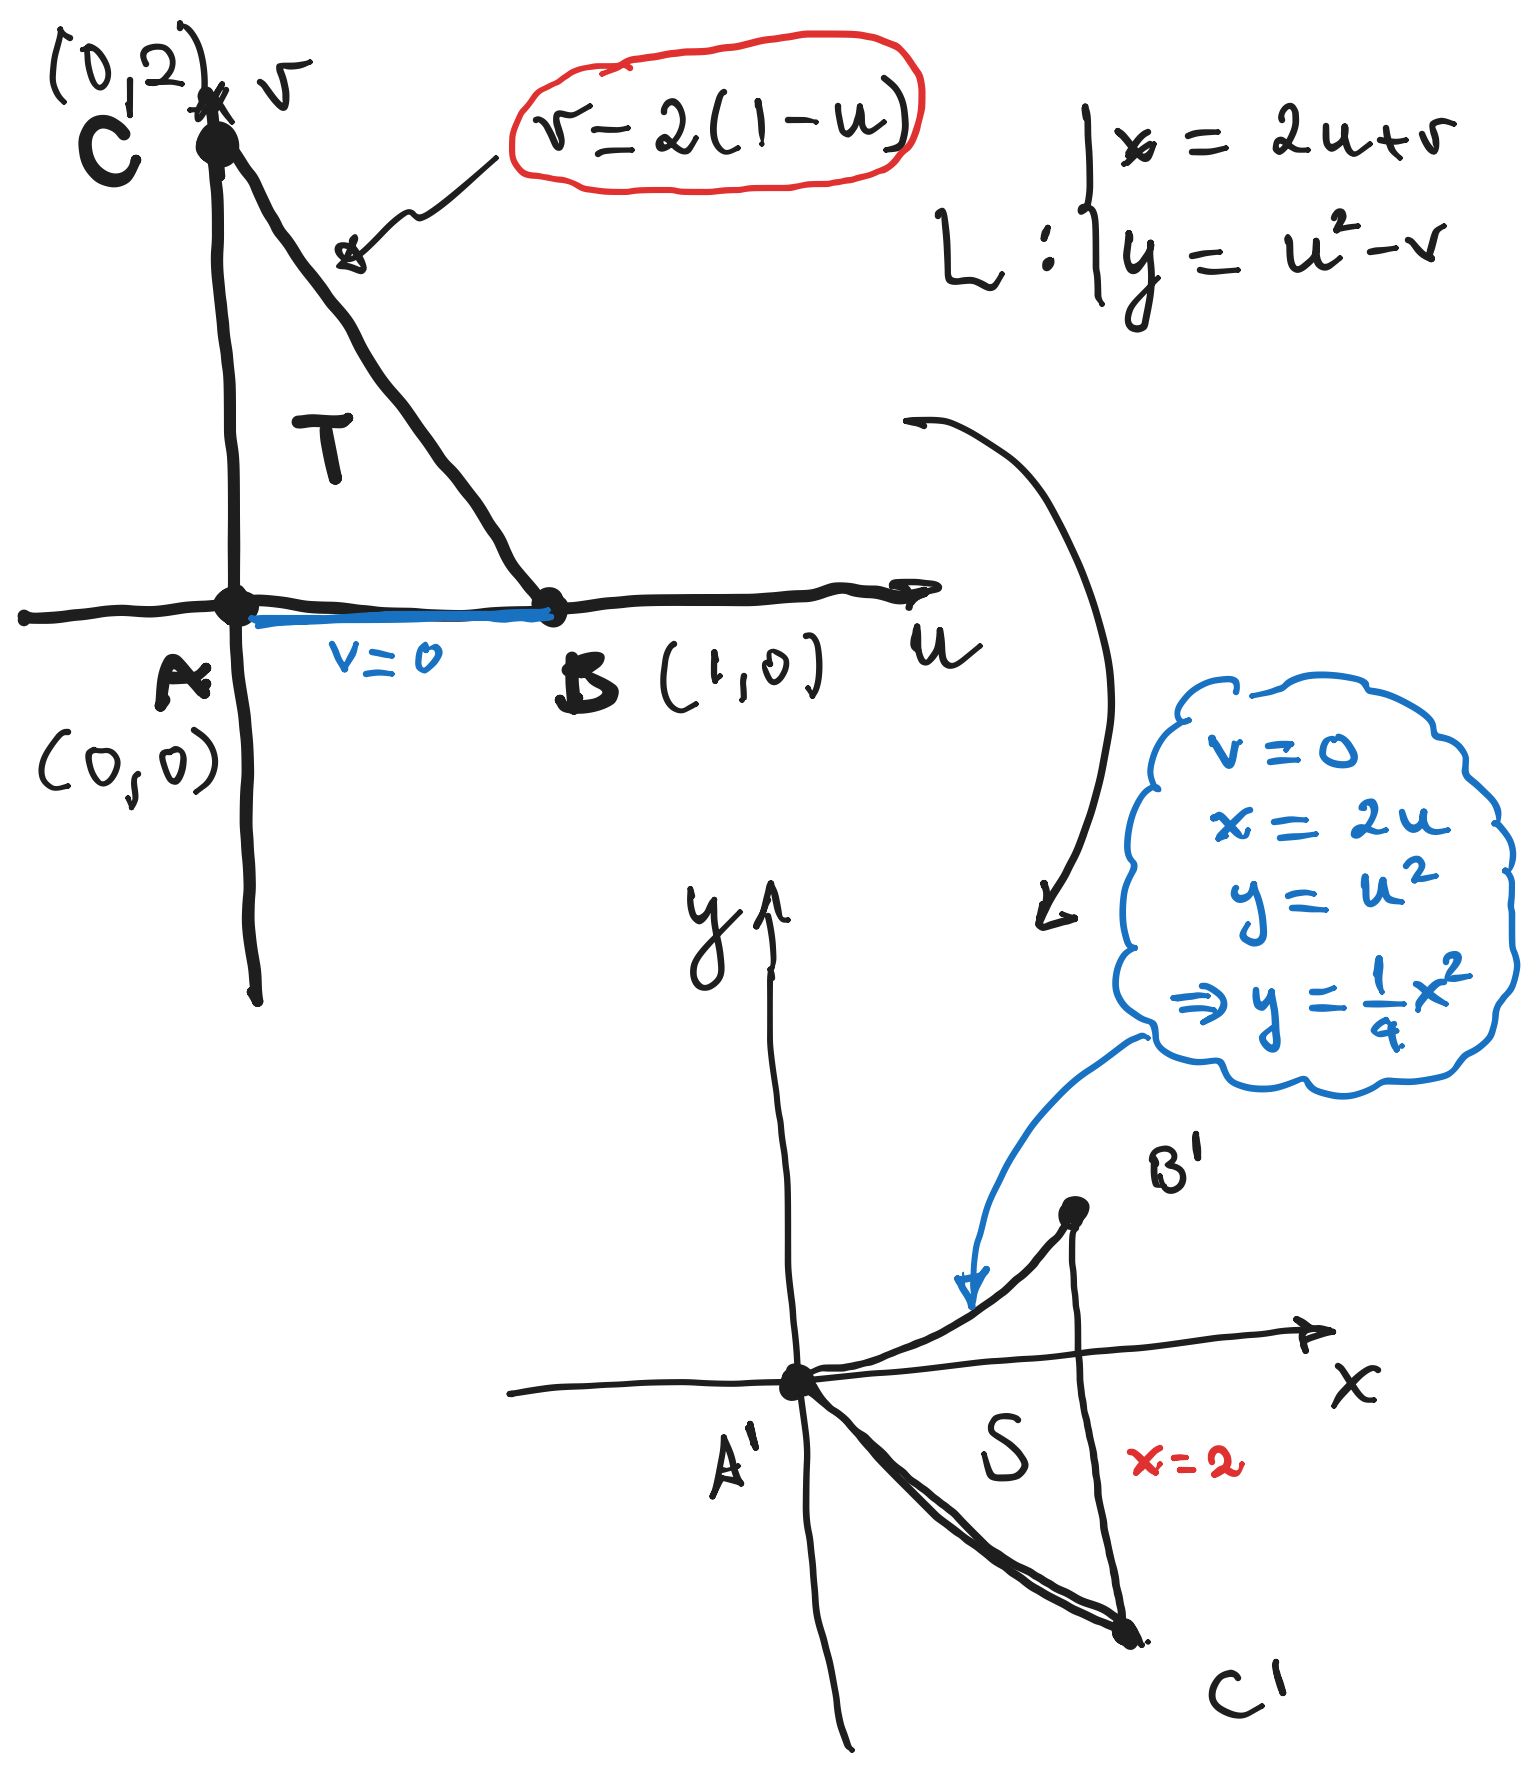 (0,2)
v
C
v=2(1-u)
L:
x = 2u+v
y = u²-v
T
v=0
u
A
B (1,0)
(0,0)
v=0
x=2u
y=u²
⇒ y=¼x²
y
B'
x
A'
S
x=2
C'